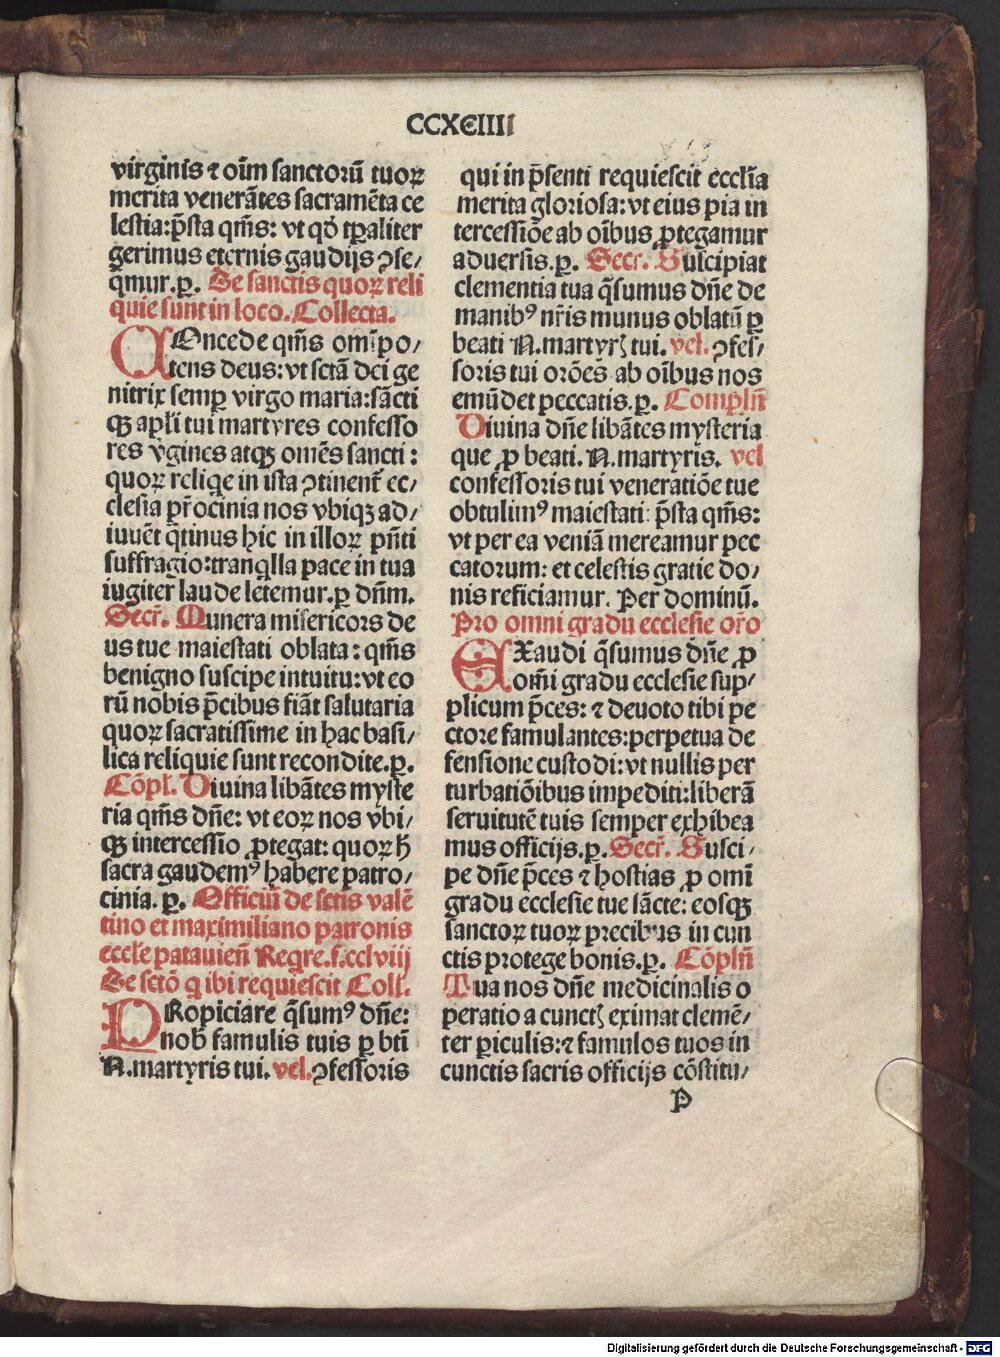 CCXCIIII
virginis ⁊ oı̄m sanctoꝛū tuoꝝ
merita venerātes sacramēta ce
lestia:p̄sta qm̄s: vt qđ tꝑaliter
gerimus eternis gaudijs ꝯse-
q̄mur.ꝑ. De sanctis quoꝝ reli
quie sunt in loco. Collecta.
COncede qm̄s om̄ipo/
tens deus: vt sctā dei ge
nitrix semꝑ virgo maria:sācti
qꝫ apl̄i tui martyres confesso
res v̄gines atqꝫ omēs sancti :
quoꝝ reliqe in ista ꝯtinent̄ ec/
clesia pr̄ocinia nos vbiqꝫ ad/
iuuēt q̄tinus hic in illoꝝ pn̄ti
suffragio:tranq̇lla pace in tua
iugiter laude letemur.ꝑ dn̄m.
Secr̄. Munera misericors de
us tue maiestati oblata: qm̄s
benigno suscipe intuitu:vt eo
rū nobis p̄cibus fiāt salutaria
quoꝝ sacratissime in hac basi/
lica reliquie sunt recondite.ꝑ.
Cōpl. Diuina libātes myste
ria qm̄s dn̄e: vt eoꝝ nos vbi/
qꝫ intercessio ꝓtegat: quoꝝ ħ
sacra gaudemꝰ habere patro/
cinia. ꝑ. Officiū de sctis valē
tino et maximiliano patronis
eccl̄e patauien̄ Reqre.f.cclviij
De sctō q ibi requiescit Coll.
PRopiciare q̄sumꝰ dn̄e:
nob̄ famulis tuis ꝑ bt̄i
N.martyris tui. vel.ꝯfessoris
qui in p̄senti requiescit eccl̄ia
merita gloꝛiosa: vt eius pia in
tercessiōe ab oı̄bus ꝓtegamur
aduersis.ꝑ. Secr. Suscipiat
clementia tua q̄sumus dn̄e de
manibꝰ nr̄is munus oblatū ꝑ
beati N.martyrꝭ tui. vel. ꝯfes/
soris tui orōes ab oı̄bus nos
emūdet peccatis.ꝑ. Compln̄
Diuina dn̄e libātes mysteria
que ꝓ beati. N.martyris. vel
confessoris tui veneratiōe tue
obtulimꝰ maiestati: p̄sta qm̄s:
vt per ea veniā mereamur pec
catorum: et celestis gratie do/
nis reficiamur. Per dominū.
Pro omni gradu ecclesie or̄o
EXaudi q̄sumus dn̄e ꝓ
om̄i gradu ecclesie sup/
plicum p̄ces: ⁊ deuoto tibi pe
ctore famulantes:perpetua de
fensione custodi: vt nullis per
turbatiōibus impediti:liberā
seruitutē tuis semper exhibea
mus officijs.ꝑ. Secr̄. Susci/
pe dn̄e p̄ces ⁊ hostias ꝓ om̄i
gradu ecclesie tue sācte: eosqꝫ
sanctoꝝ tuoꝝ precibus in cun
ctis protege bonis.ꝑ. Cōpln̄
Tua nos dn̄e medicinalis o
peratio a cunctꝭ eximat clemē/
ter ꝑiculis:⁊ famulos tuos in
cunctis sacris officijs cōstitu/
P
Digitalisierung gefördert durch die Deutsche Forschungsgemeinschaft - DFG